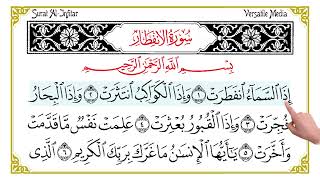 Surat Al-Infitar
Versatile Media
سُورَةُ الِانْفِطَارِ
بِسْمِ اللَّهِ الرَّحْمَٰنِ الرَّحِيمِ
إِذَا السَّمَاءُ انفَطَرَتْ ﴿١﴾ وَإِذَا الْكَوَاكِبُ انتَثَرَتْ ﴿٢﴾ وَإِذَا الْبِحَارُ
فُجِّرَتْ ﴿٣﴾ وَإِذَا الْقُبُورُ بُعْثِرَتْ ﴿٤﴾ عَلِمَتْ نَفْسٌ مَّا قَدَّمَتْ
وَأَخَّرَتْ ﴿٥﴾ يَا أَيُّهَا الْإِنسَانُ مَا غَرَّكَ بِرَبِّكَ الْكَرِيمِ ﴿٦﴾ الَّذِي